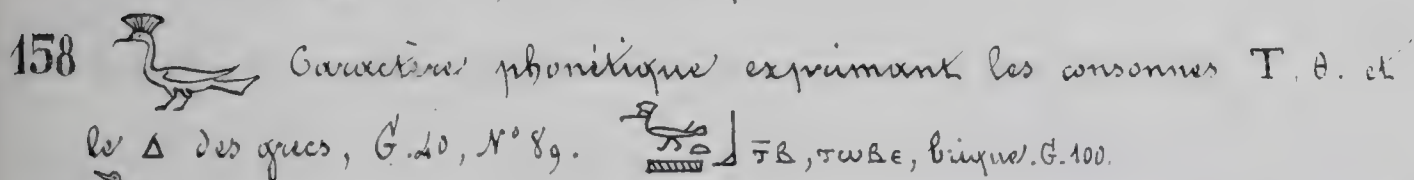 158 Caractère phonétique exprimant les consonnes T. θ. et
le Δ des grecs, G. 40, N° 89. ⲧ̄ⲃ, ⲧⲱⲃⲉ, brique. G. 100.